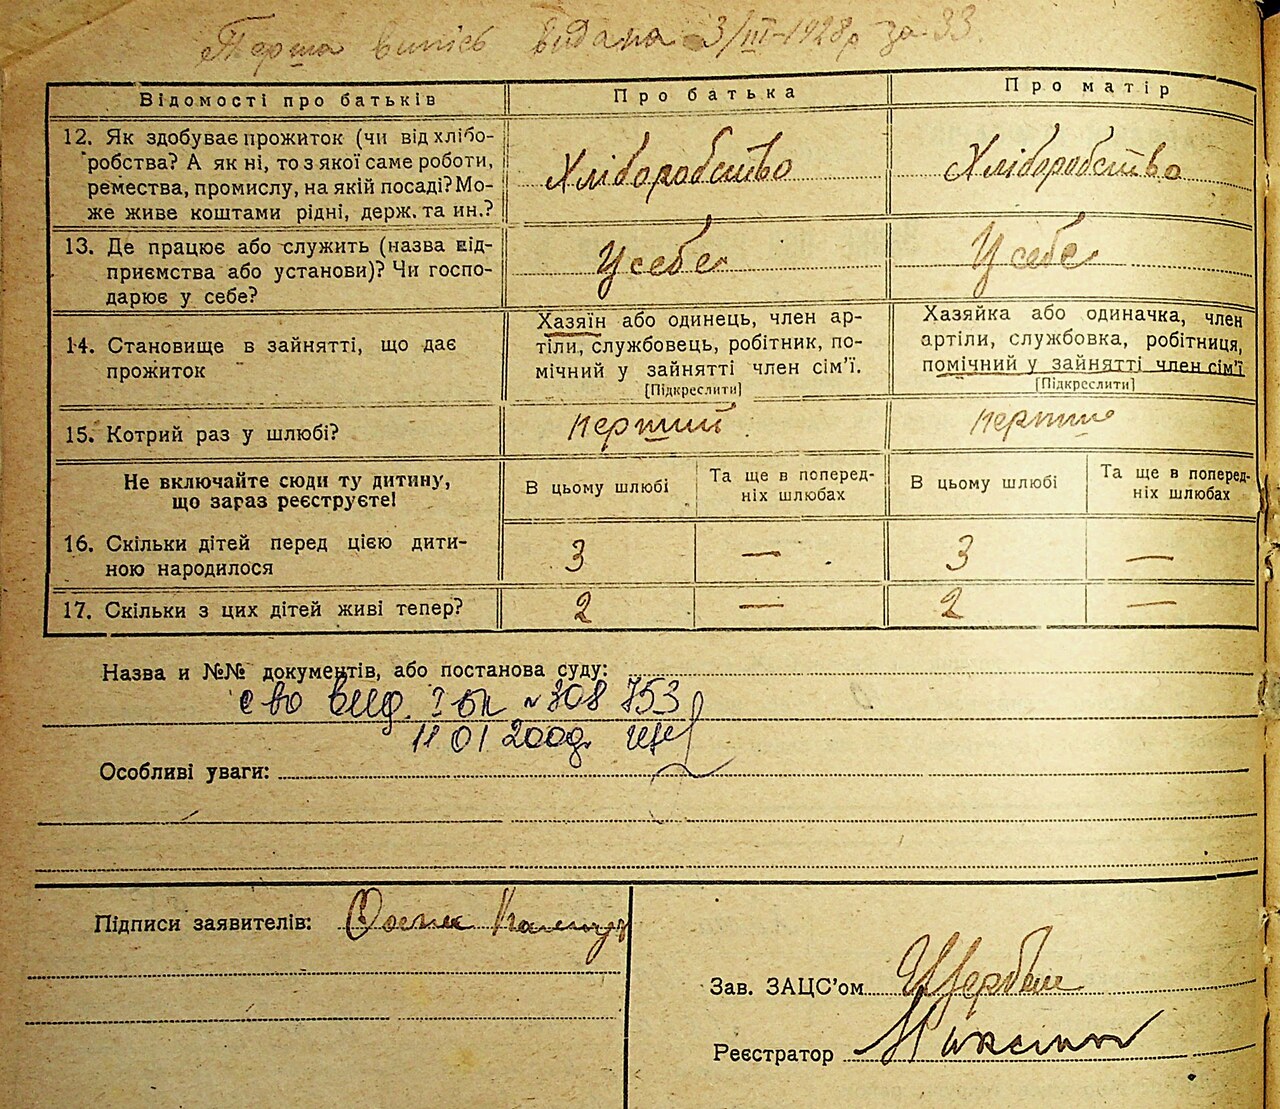 Перша випісь видана 3/III-1928р за 33.
Відомості про батьків
Про батька
Про матір
12. Як здобуває прожиток (чи від хлібо-
робства? А як ні, то з якої саме роботи,
ремества, промислу, на якій посаді? Мо-
же живе коштами рідні, держ. та ин.?
Хліборобство
Хліборобство
13. Де працює або служить (назва під-
приємства або установи)? Чи госпо-
дарює у себе?
У себе
У себе
14. Становище в зайнятті, що дає
прожиток
Хазяїн або одинець, член ар-
тіли, службовець, робітник, по-
мічний у зайнятті член сім'ї.
[Підкреслити]
Хазяйка або одиначка, член
артіли, службовка, робітниця,
помічний у зайнятті член сім'ї
[Підкреслити]
15. Котрий раз у шлюбі?
перший
перший
Не включайте сюди ту дитину,
що зараз реєструєте!
В цьому шлюбі
Та ще в поперед-
ніх шлюбах
В цьому шлюбі
Та ще в поперед-
ніх шлюбах
16. Скільки дітей перед цією дити-
ною народилося
3
—
3
—
17. Скільки з цих дітей живі тепер?
2
—
2
—
Назва и №№ документів, або постанова суду:
с во вид. № 308 753
11 01 200
Особливі уваги:
Підписи заявителів:
Зав. ЗАЦС'ом Щербак
Реєстратор